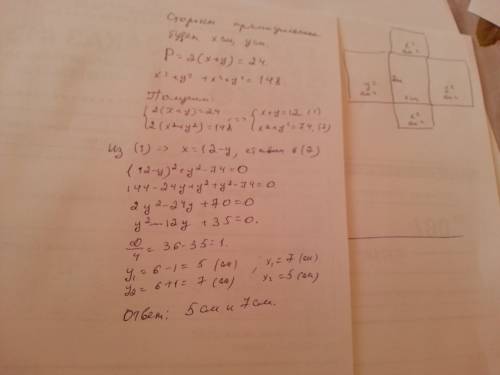 Стороны прямоугольника
будут x см, y см.
P = 2(x+y) = 24.
x² + y² + x² + y² = 148.
Получим:
{2(x+y)=24 {x+y=12 (1)
{2(x²+y²)=148 <=> {x²+y²=74, (2)
Из (1) => x=12-y, ставим в (2)
(12-y)²+y²-74=0
144-24y+y²+y²-74=0
2y²-24y+70=0
y²-12y+35=0.
D/4 = 36-35=1.
y₁ = 6-1 = 5 (см) ; x₁ = 7 (см)
y₂ = 6+1 = 7 (см) x₂ = 5 (см)
Ответ: 5 см и 7 см.
x²
y²
y²
x²